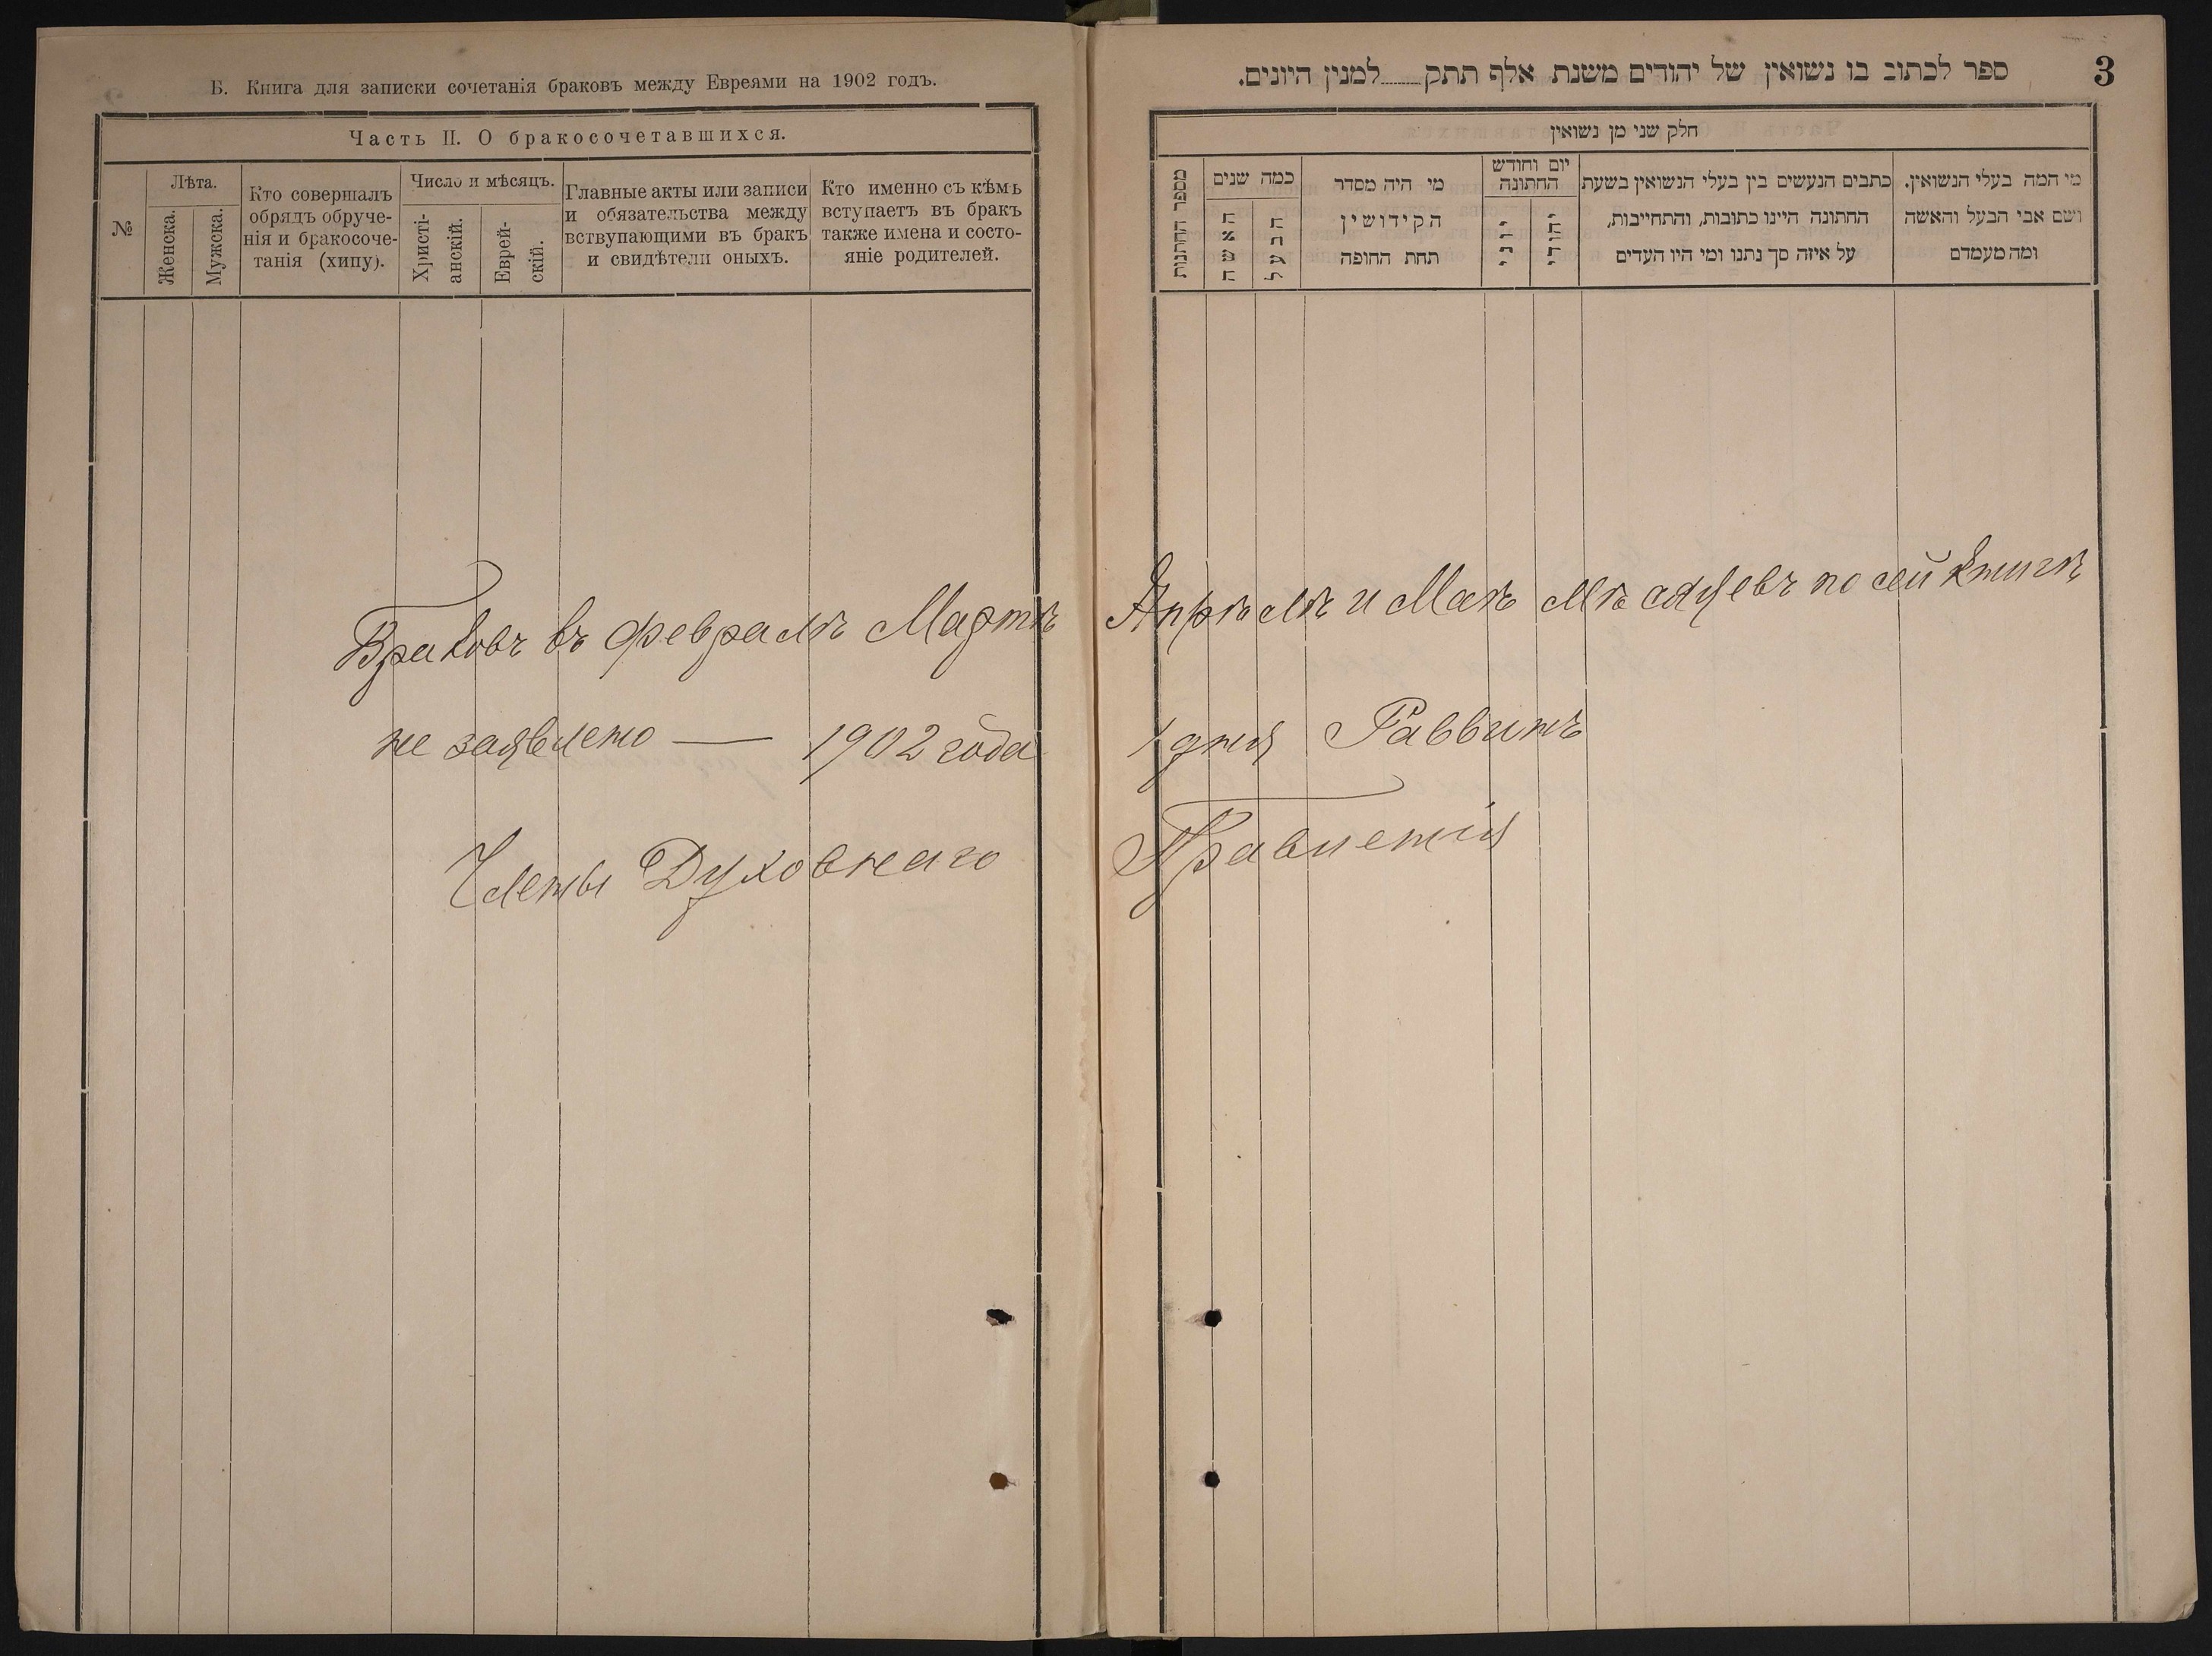 Б. Книга для записки сочетанія браковъ между Евреями на 1902 годъ.
Часть II. О бракосочетавшихся.
№
Лѣта.
Женска.
Мужска.
Кто совершалъ
обрядъ обруче-
нія и бракосоче-
танія (хипу).
Число и мѣсяцъ.
Христі-
анскій.
Еврей-
скій.
Главные акты или записи
и обязательства между
вствупающими въ бракъ
и свидѣтели оныхъ.
Кто именно съ кѣмъ
вступаетъ въ бракъ
также имена и состо-
яніе родителей.
3
ספר לכתוב בו נשואין של יהודים משנת אלף תתק........למנין היונים.
חלק שני מן נשואין
מספר החתונות
כמה שנים
האשה
הבעל
מי היה מסדר
הקידושין
תחת החופה
יום וחודש
החתונה
יוני
יהודי
כתבים הנעשים בין בעלי הנשואין בשעת
החתונה היינו כתובות, והתחייבות,
על איזה סך נתנו ומי היו העדים
מי המה בעלי הנשואין.
ושם אבי הבעל והאשה
ומה מעמדם
Браковъ въ февралѣ Мартѣ Апрѣлѣ и Маѣ мѣсяцевъ по сей книгѣ
не заявлено — 1902 года 1 дня Раввинъ
Члены Духовнаго Правленія